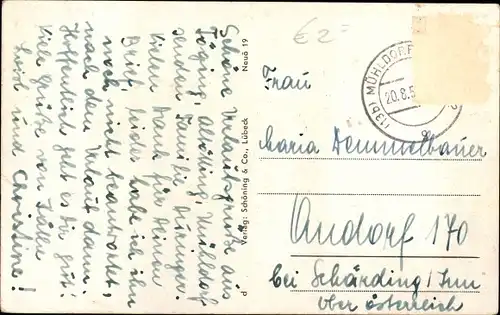 Schöne Urlaubsgrüße aus
Töging, Altötting, Mühldorf
senden Familie
Vielen Dank für Deinen
Brief, leider habe ich ihn
noch nicht beantwortet,
nach dem Urlaub dann.
Hoffentlich geht es Dir gut!
Viele Grüße von
und Christine!
d
Verlag: Schöning & Co., Lübeck
Neuö 19
€ 2=
(13b) MÜHLDORF
20.8.5
Frau
Maria Demmelbauer
Andorf 170
bei Schärding/Inn
Ober österreich